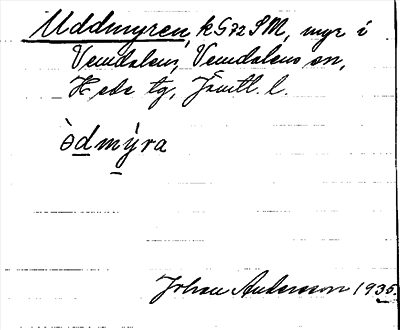 Uddmyren, k G 72 SM, myr i
Vemdalen, Vemdalens sn,
Hede tg, Jämtl. l.
òdmýra
Johan Andersson 1935.